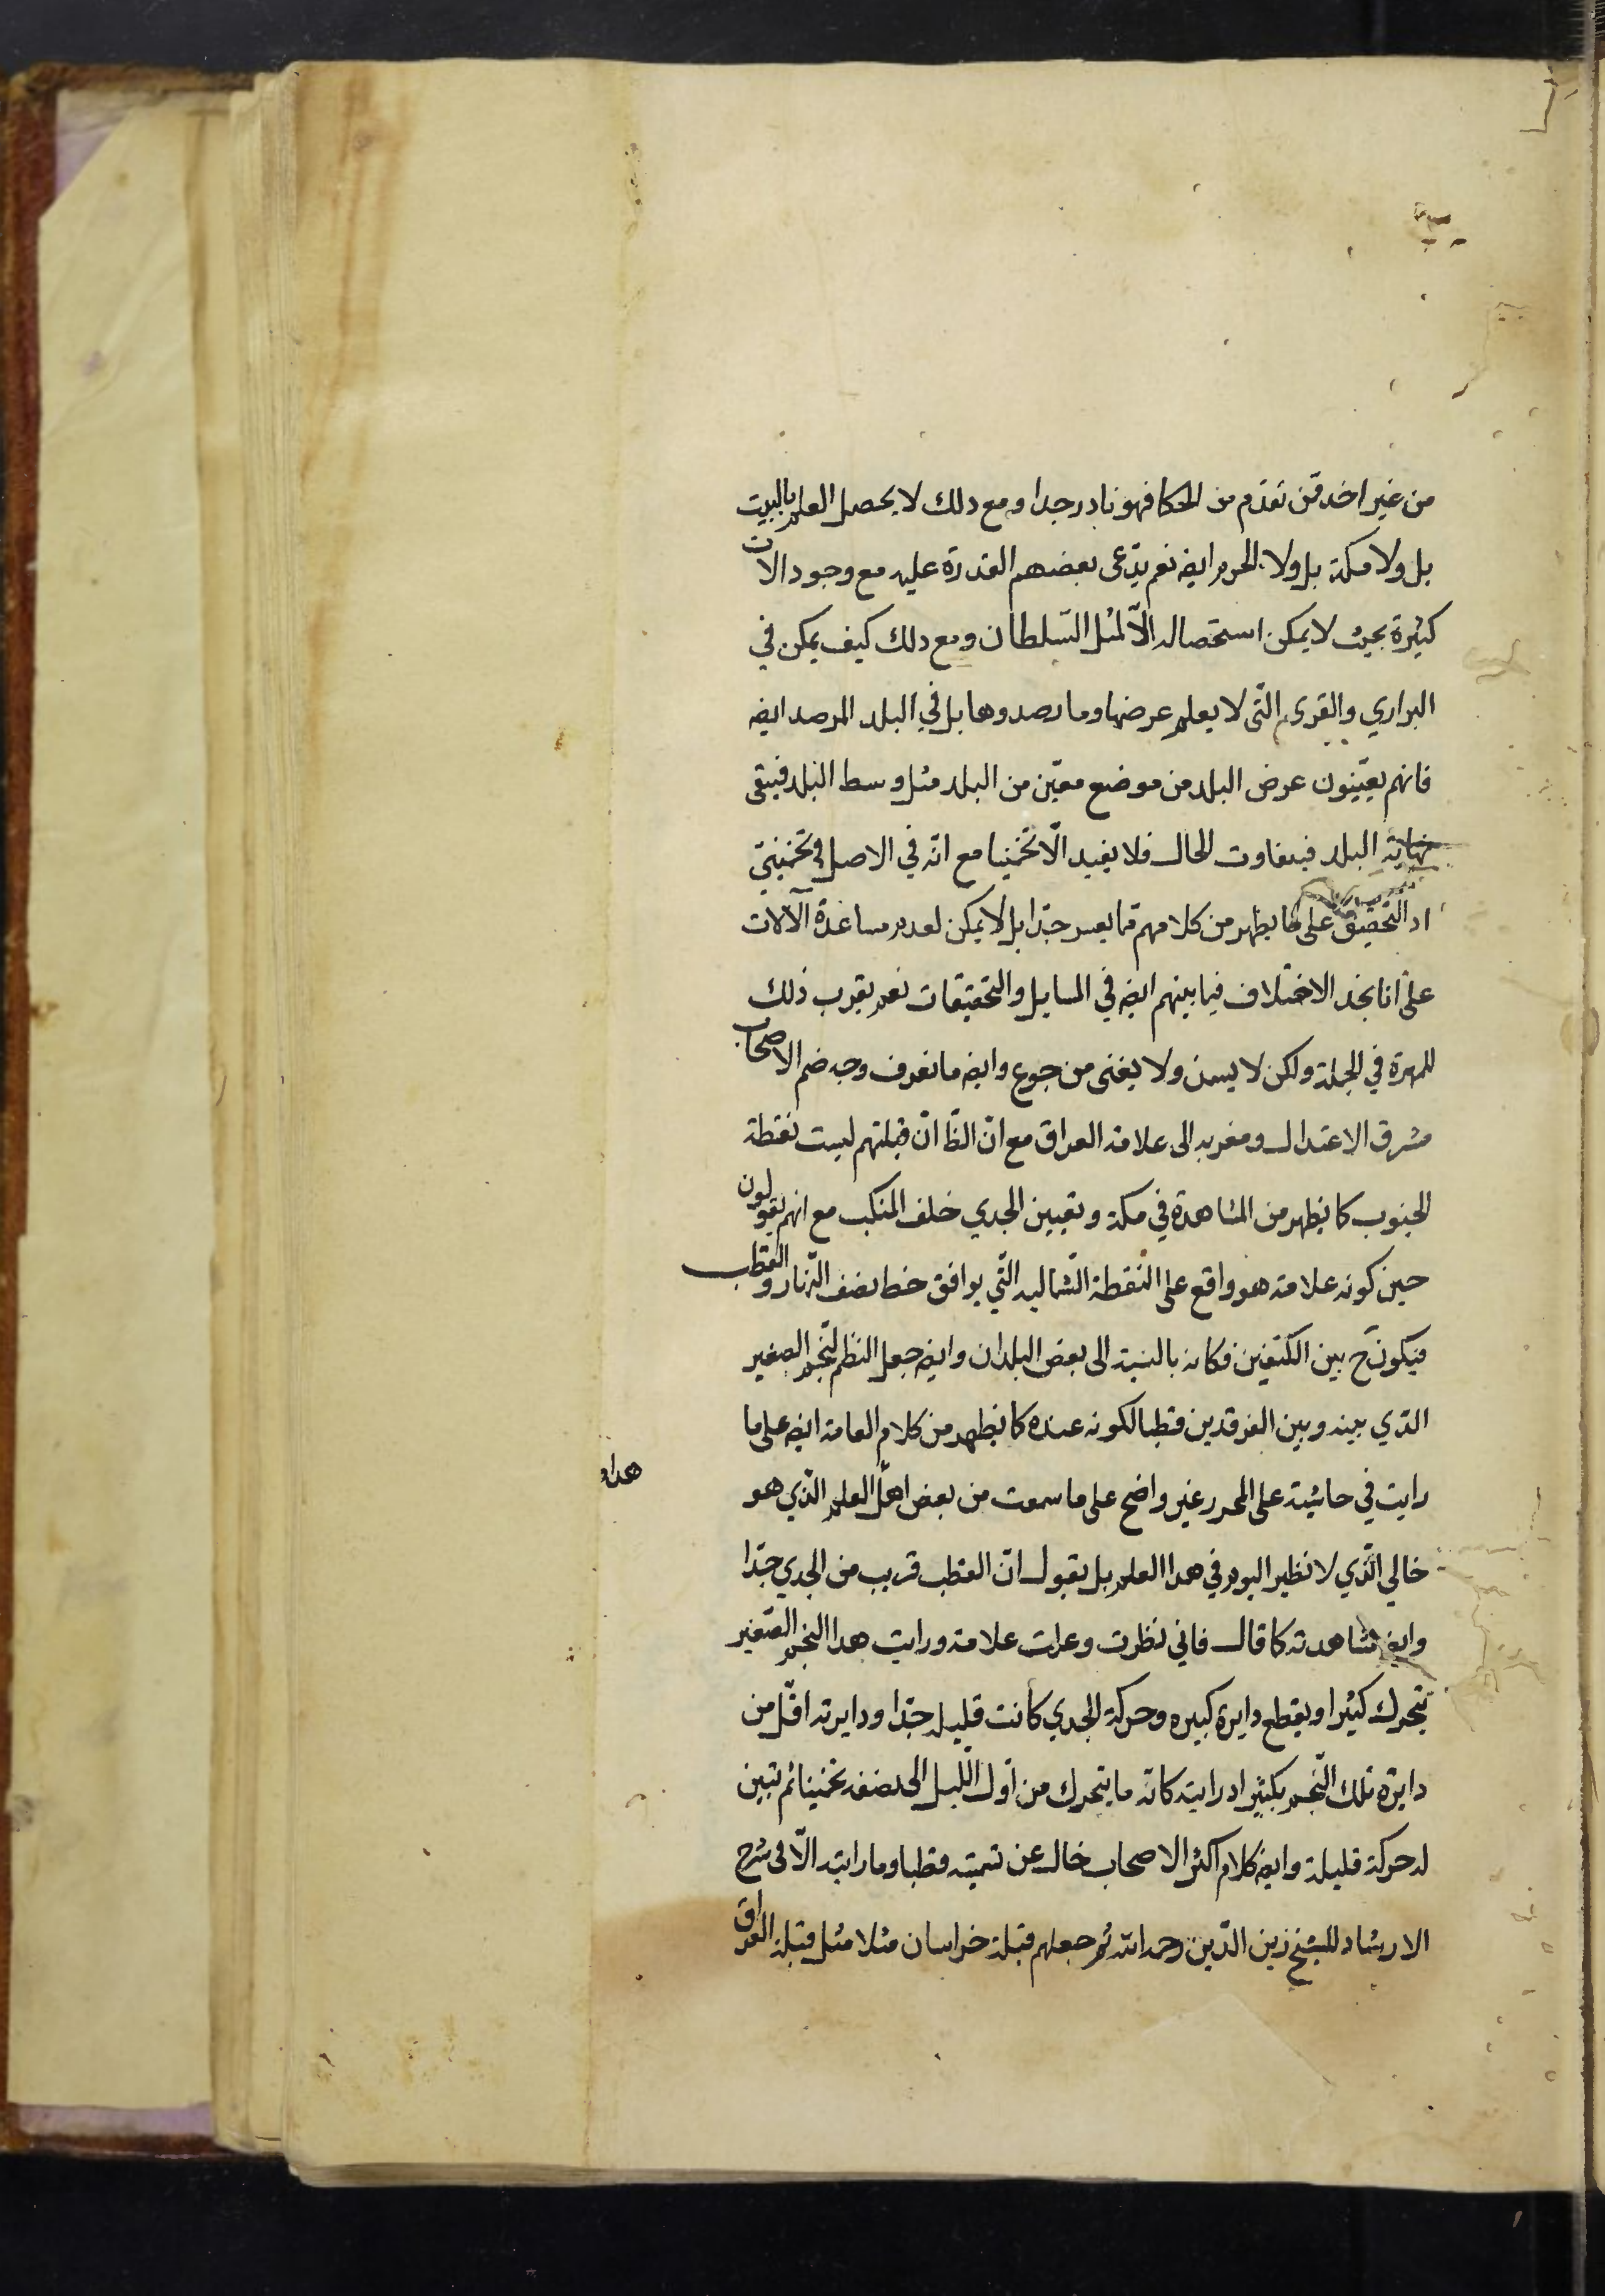 من غير اخد ممن تقدم من الحكما فهو نادر جدا ومع دلك لا يحصل العلم بالبيت
بل ولا مكة بل ولا الحرم ايضه نعم يدّعى بعضهم القدرة عليه مع وجود الات
كثيرة بحيث لا يمكن استحصاله الّا لمثل السّلطان ومع دلك كيف يمكن في
البراري والقرى التّى لا يعلم عرضها وما رصدوها بل في البلد المرصد ايضه
فانهم يعيّنون عرض البلد من موضع معيّن من البلد مثل وسط البلد فيبقى
نهاية البلد فيتفاوت الحال فلا يفيد الّا تخمينا مع انّه في الاصل تخمينىّ
اد التّحقيق على ما يظهر من كلامهم ممّا يعسر جدّا بل لا يمكن لعدم مساعدة الآلات
على انا نجد الاختلاف فيما بينهم ايضه في المسايل والتحقيقات نعم يقرب ذلك
للمهرة في الجملة ولكن لا يسمن ولا يغنى من جوع وايضه ما نعرف وجه ضم الاصحاب
مشرق الاعتدال ومغربه الى علامة العراق مع انّ الظّ انّ قبلتهم ليست نقطة
الجنوب كما يظهر من المشاهدة في مكة وتعيين الجدي خلف المنكب مع انهم يقولون
حين كونه علامة هو واقع على النقطة الشّمالية التّي يوافق خط نصف النّهار والقطب
فيكون ح بين الكتفين فكانه بالنسبة الى بعض البلدان وايضه جعل النظم النّجم الصغير
الذي بينه وبين الفرقدين قطبا لكونه عنده كما يظهر من كلام العامة ايضه على ما
رايت في حاشية على المحرر غير واضح على ما سمعت من بعض اهل العلم الذي هو
هدا و
خالي الّذي لا نظير اليوم في هدا العلم بل يقول انّ القطب قريب من الجدي جدّا
وايضه شاهدته كما قال فاني نظرت وعملت علامة ورايت هدا النجم الصّغير
يتحرك كثيرا ويقطع دايرة كبيره وحركة الجدي كانت قليلة جدّا ودايرته اقلّ من
دايرة تلك النّجم بكثير اد رايته كانّه ما يتحرك من اوّل اللّيل الى نصفه تخمينا ثم تبين
له حركة قليلة وايضه كلام اكثر الاصحاب خال عن تسميته قطبا وما رايته الّا فى شرح
الارشاد للشيخ زين الدّين رحمه الله ثم جعلهم قبلة خراسان مثلا مثل قبلة العراق